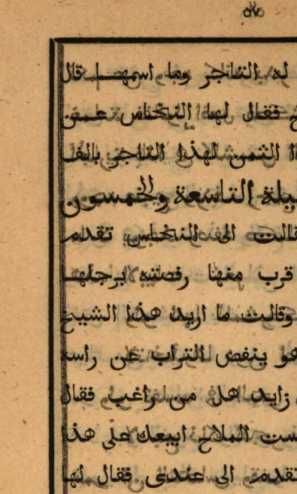 له التاجر وما اسمها قال
فقال لها النخاس عمن
الثمن لهذا التاجر بالف
ليلة التاسعة والخمسون
قالت الى النخاس تقدم
قرب منها رفصته برجلها
وقالت ما اريد هذا الشيخ
هو ينفض التراب عن راسه
زايد هل من راغب فقال
ست الملاح ابيعك على هذا
تقدم الى عندى فقال لها